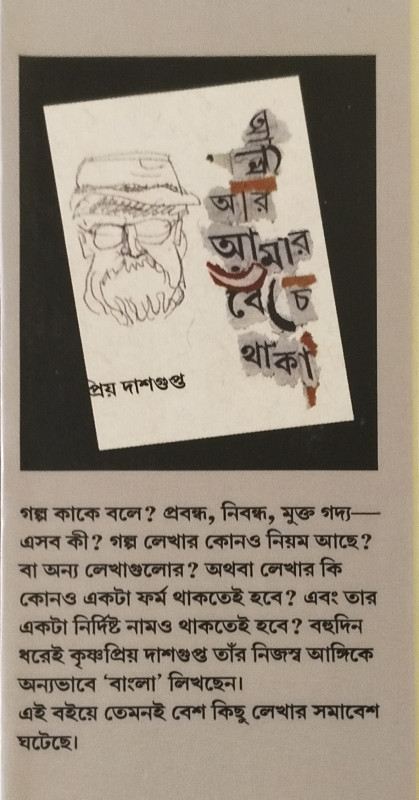 আমি
আর
আমার
বেঁচে
থাকা
প্রিয় দাশগুপ্ত
গল্প কাকে বলে? প্রবন্ধ, নিবন্ধ, মুক্ত গদ্য—
এসব কী? গল্প লেখার কোনও নিয়ম আছে?
বা অন্য লেখাগুলোর? অথবা লেখার কি
কোনও একটা ফর্ম থাকতেই হবে? এবং তার
একটা নির্দিষ্ট নামও থাকতেই হবে? বহুদিন
ধরেই কৃষ্ণপ্রিয় দাশগুপ্ত তাঁর নিজস্ব আঙ্গিকে
অন্যভাবে ‘বাংলা’ লিখছেন।
এই বইয়ে তেমনই বেশ কিছু লেখার সমাবেশ
ঘটেছে।